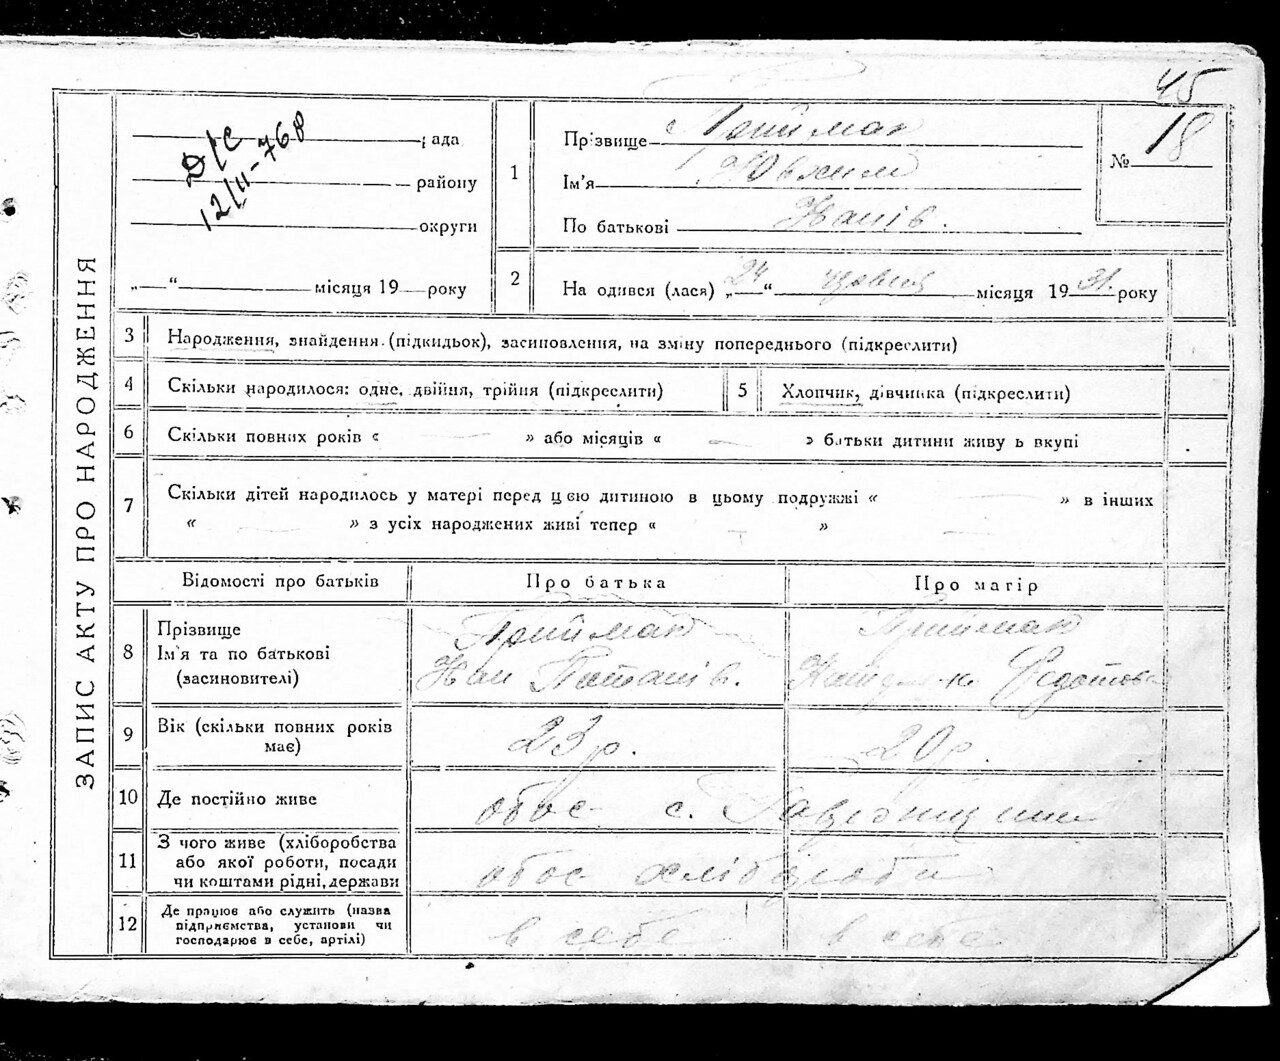 45
ЗАПИС АКТУ ПРО НАРОДЖЕННЯ
Д/С
12/II-768
рада
району
округи
„—“ місяця 19 року
1
Прізвище Приймак
Ім'я Ювхим
По батькові Іванів.
№ 18
2
На одився (лася) „24“ червня місяця 1931. року
3 Народження, знайдення (підкидьок), засиновлення, на зміну попереднього (підкреслити)
4 Скільки народилося: одне, двійня, трійня (підкреслити)
5 Хлопчик, дівчинка (підкреслити)
6 Скільки повних років « — » або місяців « — » батьки дитини живу ь вкупі
7 Скільки дітей народилось у матері перед цією дитиною в цьому подружжі « — » в інших
« — » з усіх народжених живі тепер « — »
Відомості про батьків Про батька Про матір
8 Прізвище
Ім'я та по батькові
(засиновителі)
Приймак
Іван Потапів.
Приймак
Федотов
9 Вік (скільки повних років
має)
23 р.
20 р.
10 Де постійно живе
обоє с.
11 З чого живе (хліборобства
або якої роботи, посади
чи коштами рідні, держави
обоє хлібороби
12 Де працює або служить (назва
підприємства, установи чи
господарює в себе, артілі)
в себе в себе